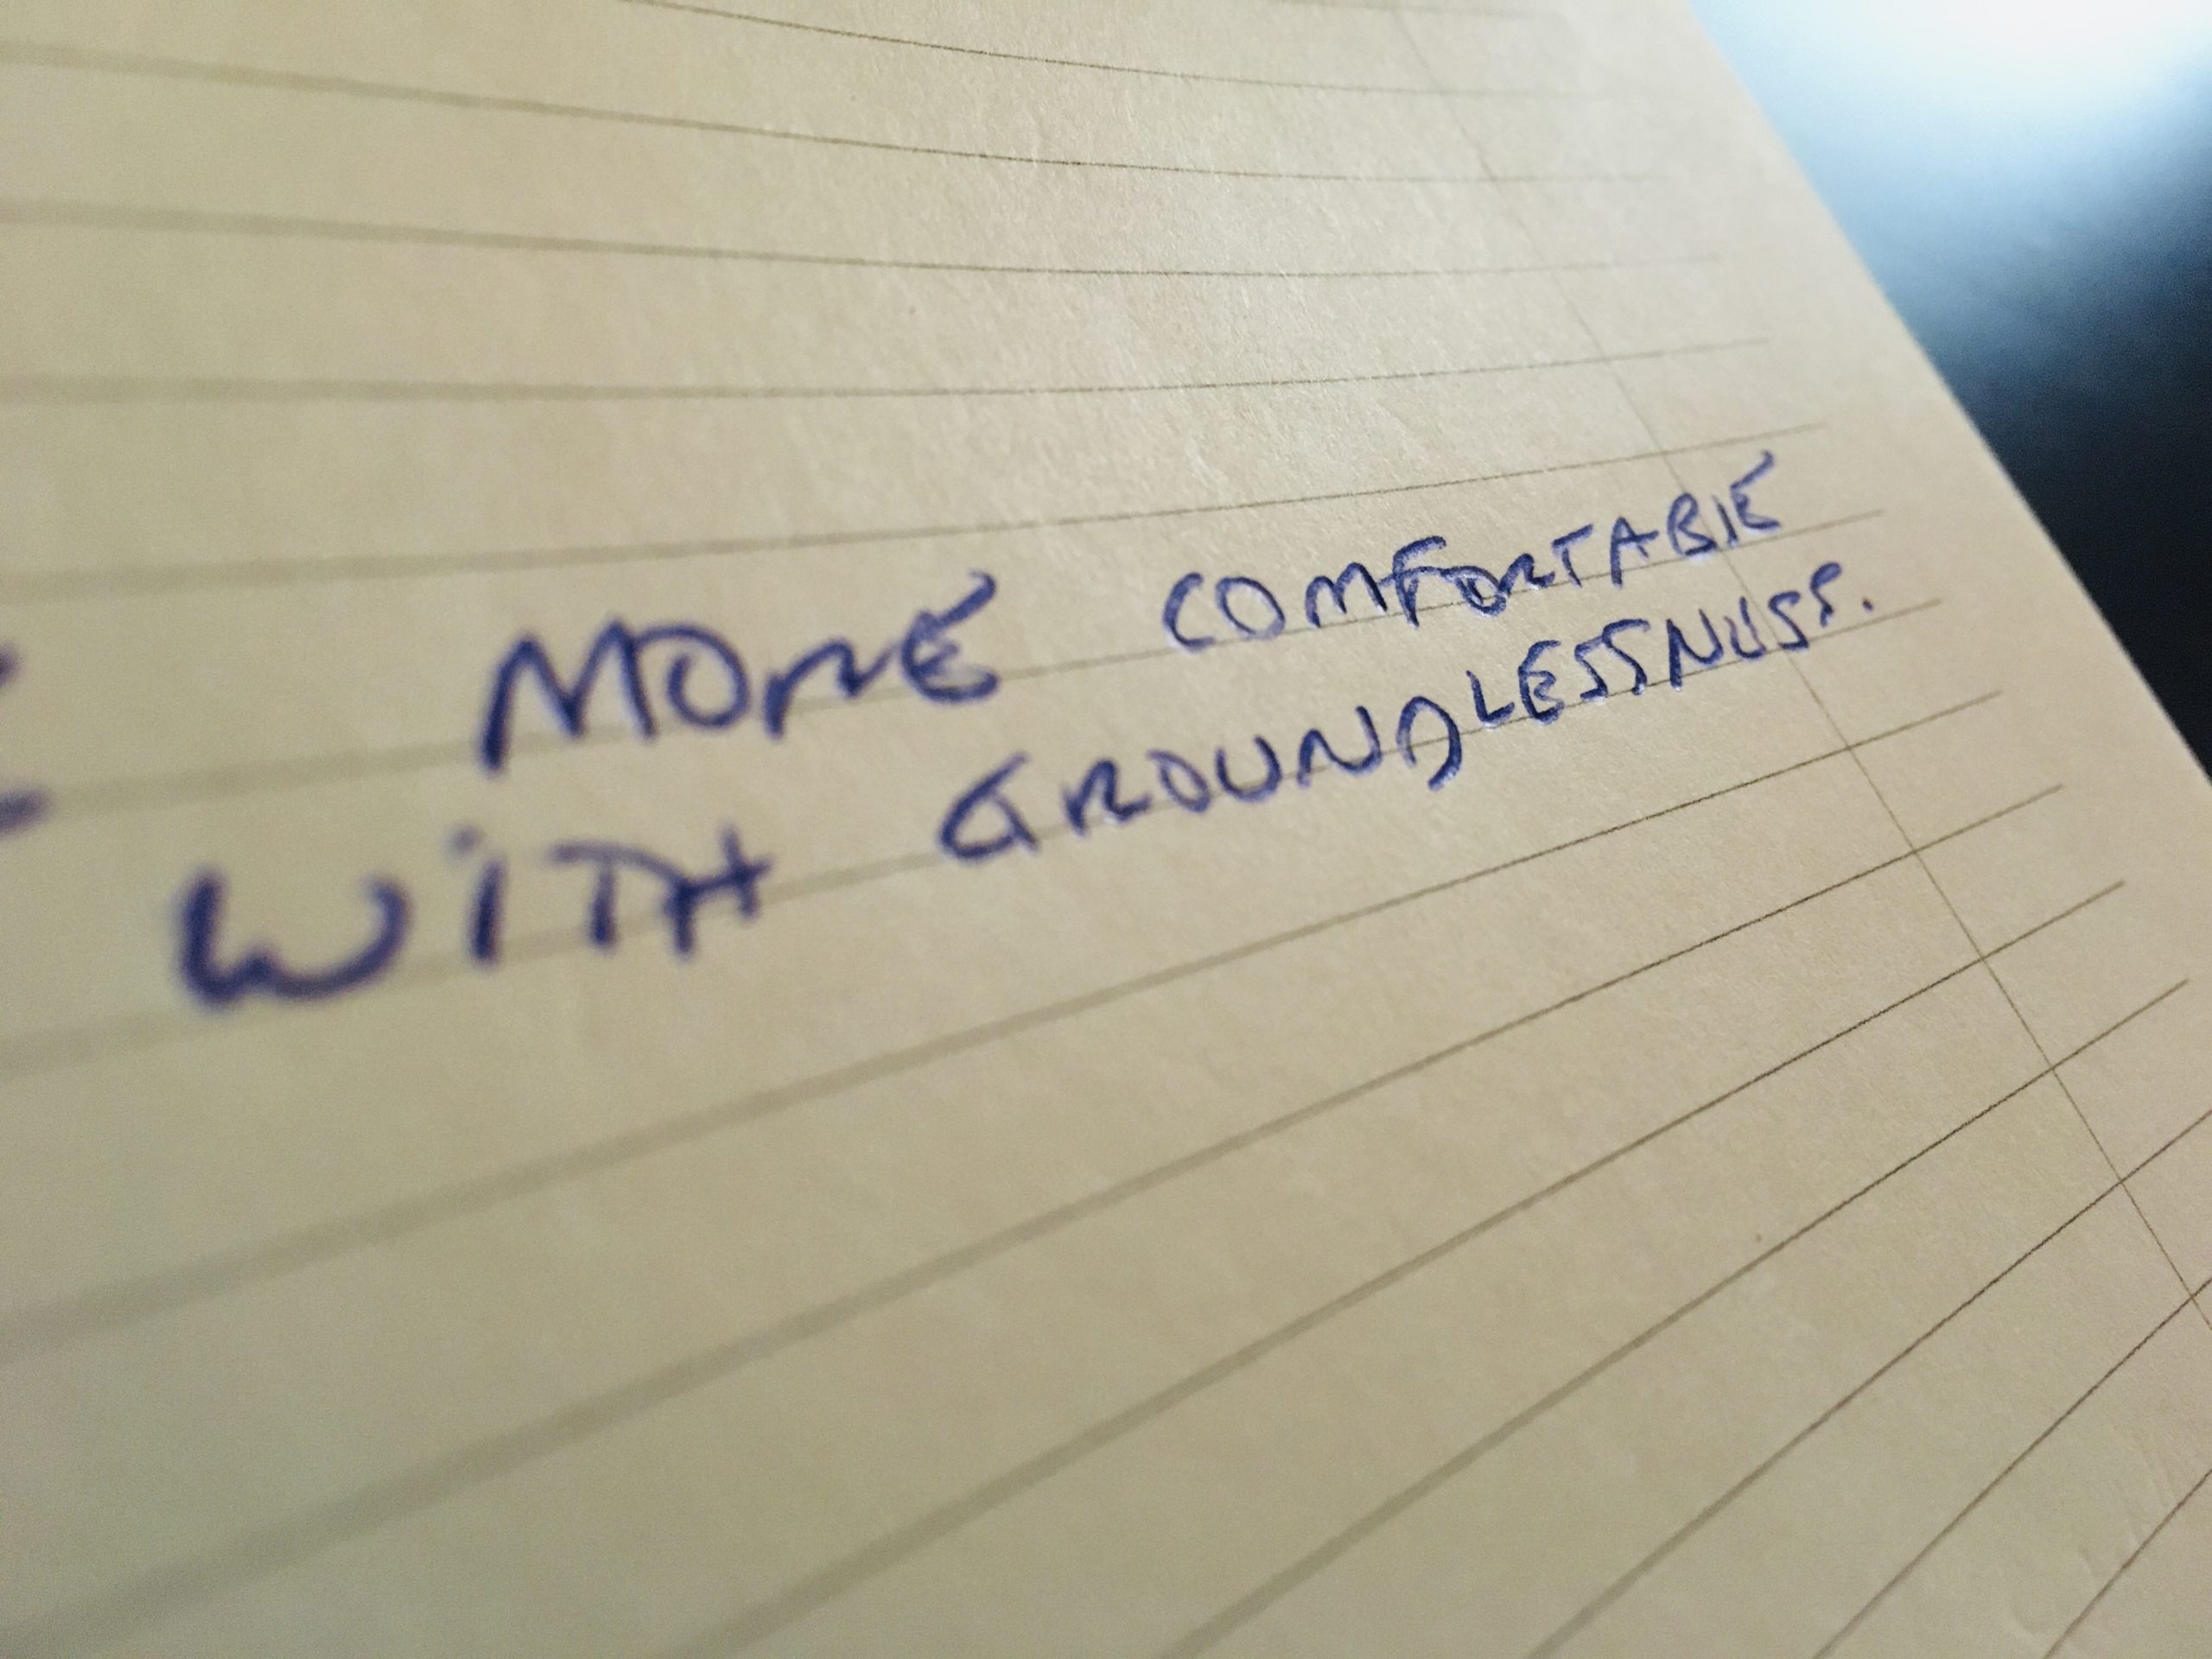 MORE COMFORTABLE
WITH GROUNDLESSNESS.